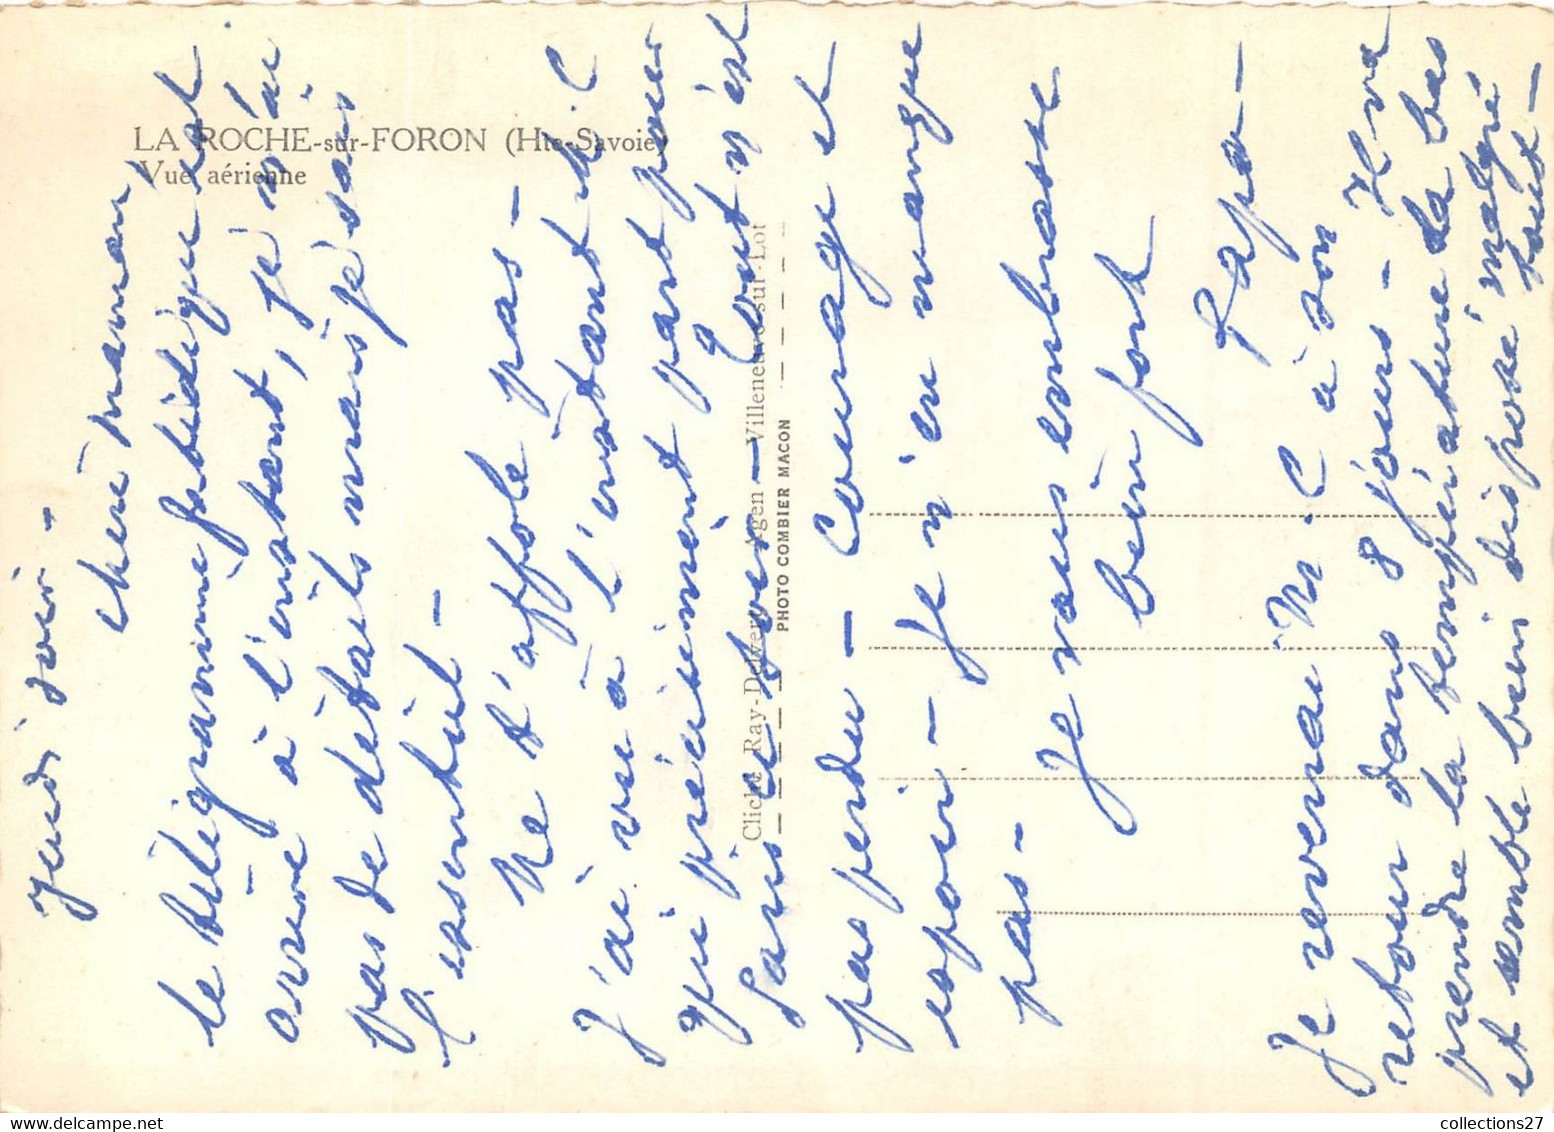 LA ROCHE-sur-FORON (Hte-Savoie)
Vue aérienne
Cliché Ray-Delvert Agen - Villeneuve-sur-Lot
PHOTO COMBIER MACON
Jeudi soir -
Chère maman,
Le télégramme fatidique est
arrivé à l'instant, je n'ai
pas de détails mais je sais
l'essentiel -
Ne t'affole pas -
J'ai vu à l'instant M. C
qui précisément part pour
Paris ce soir - Tout n'est
pas perdu - Courage et
espoir - Je n'en manque
pas -
Je vous embrasse
bien fort
Papo -
Je reverrai M. C à son
retour dans 8 jours - Il va
prendre la température là bas
et semble bien disposé malgré
tout -
collections27